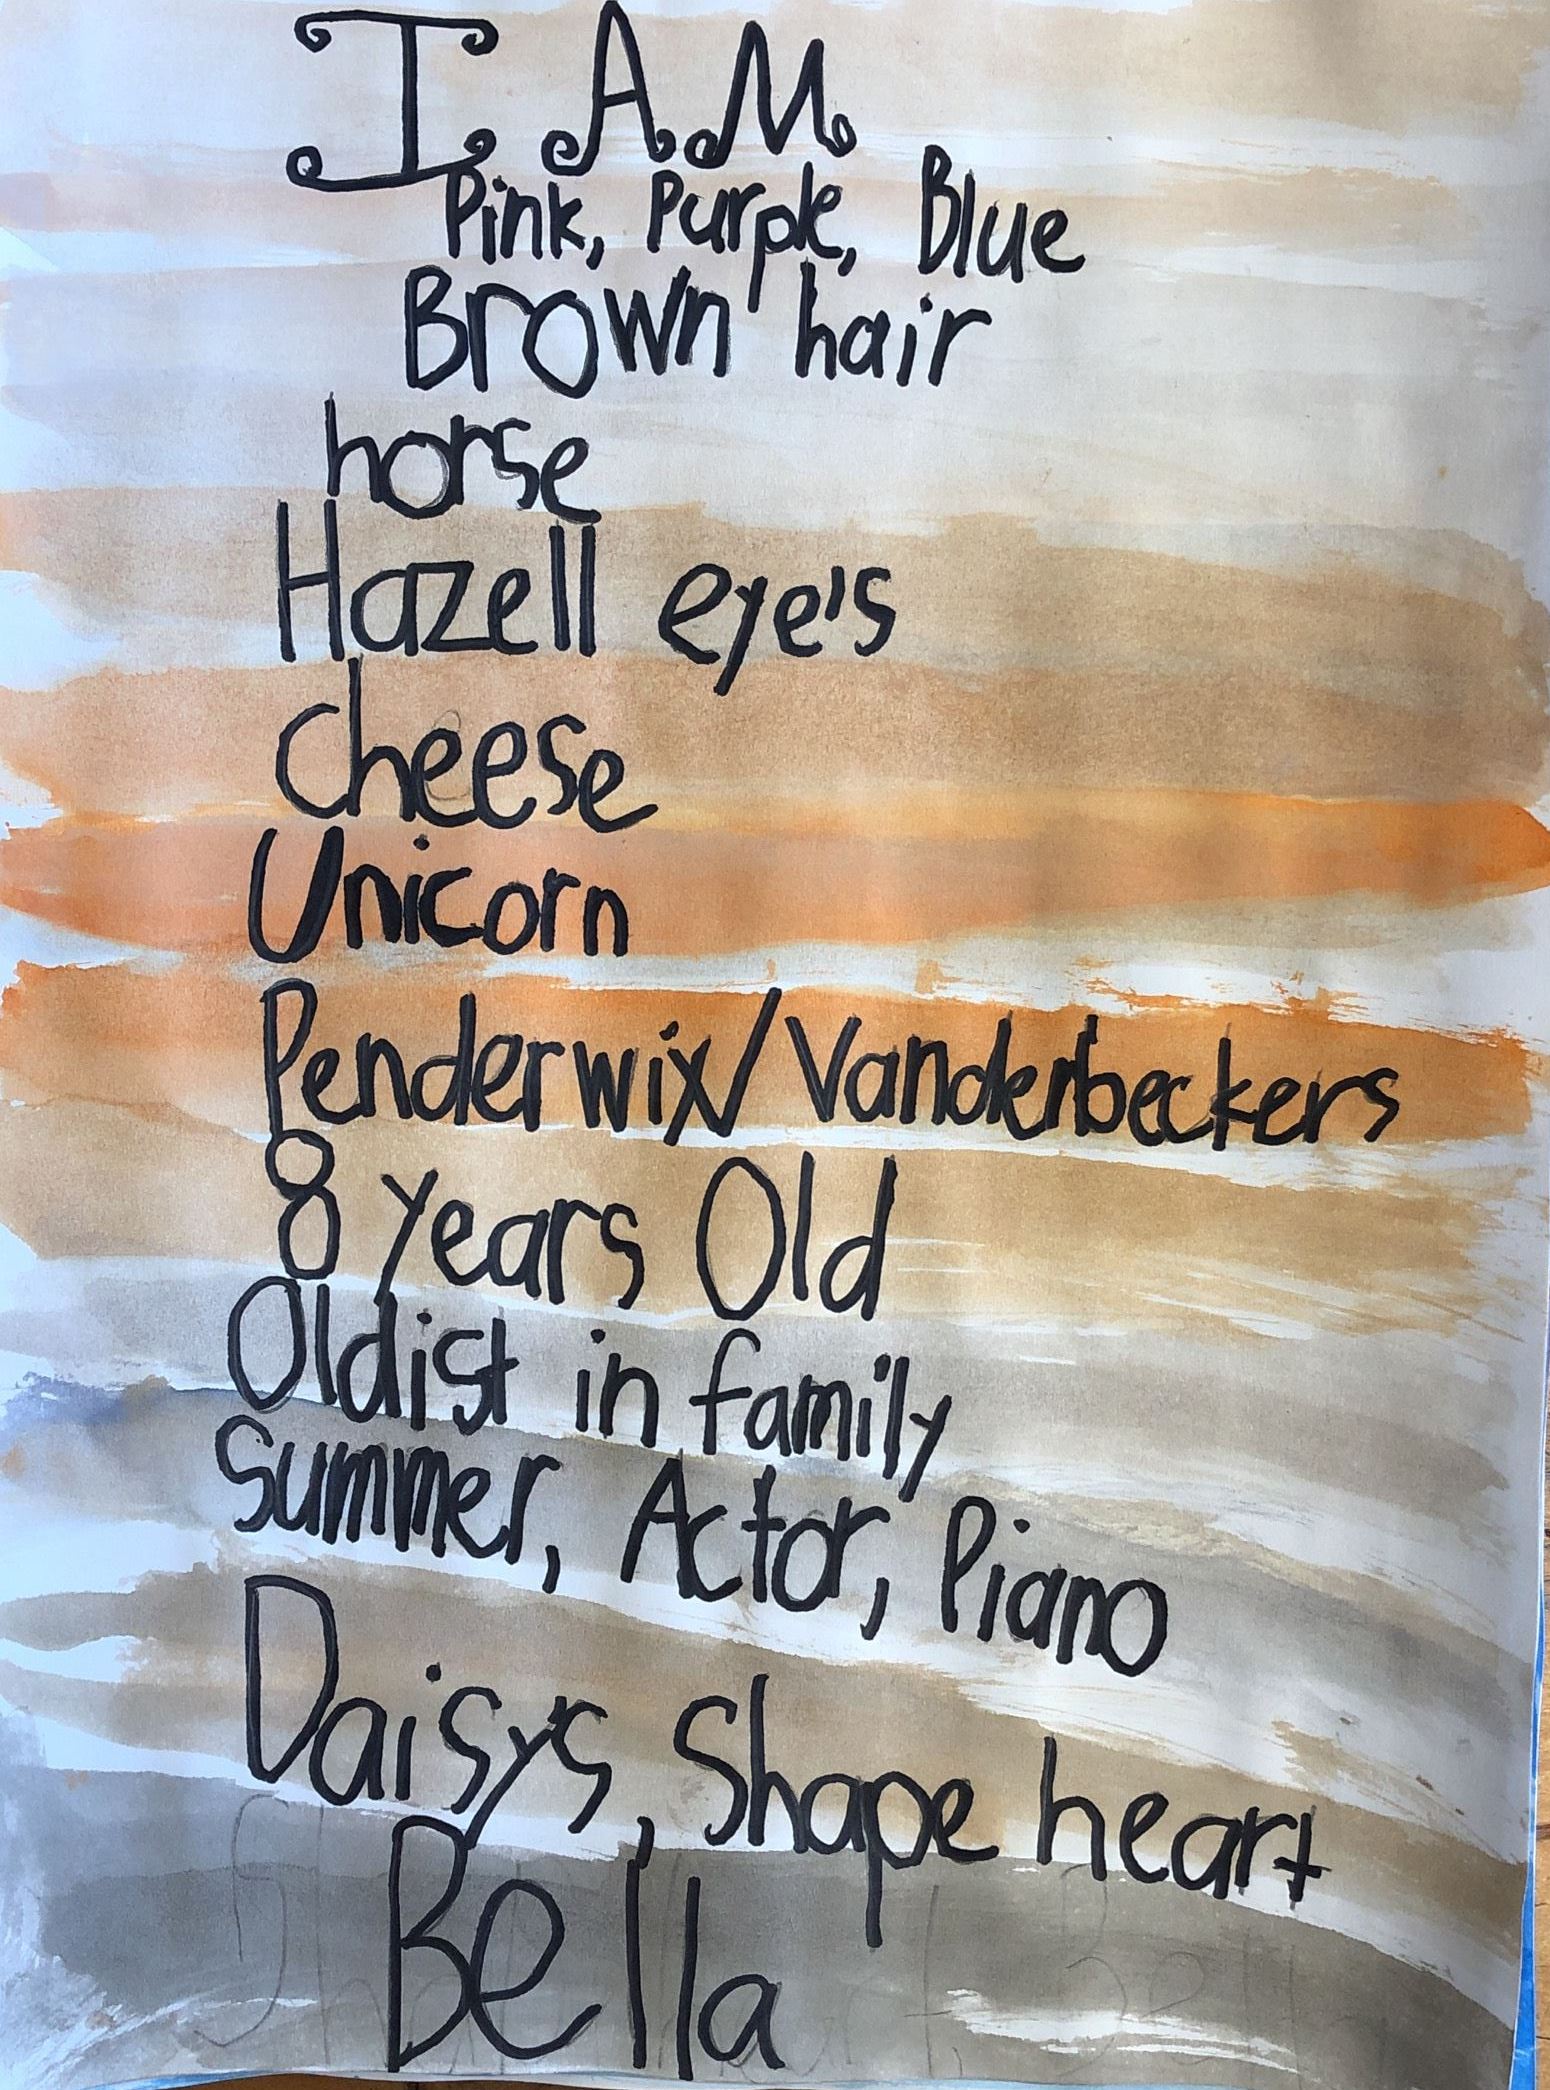 I AM
Pink, Purple, Blue
Brown hair
horse
Hazell eye's
cheese
Unicorn
Penderwix/Vanderbeckers
8 years Old
Oldist in family
Summer, Actor, Piano
Daisys, Shape heart
Bella